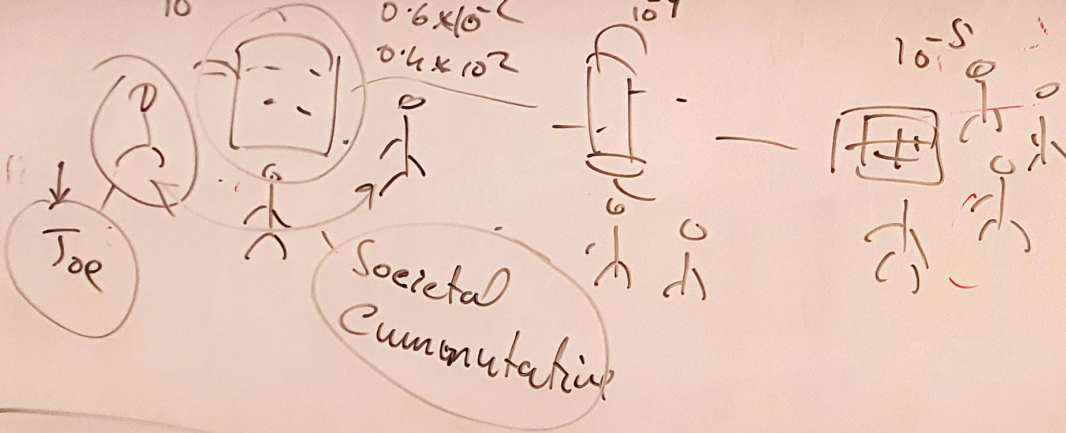 10
0.6×10⁻²
0.4×10²
10⁻⁵
Joe
Societal
Cummutative